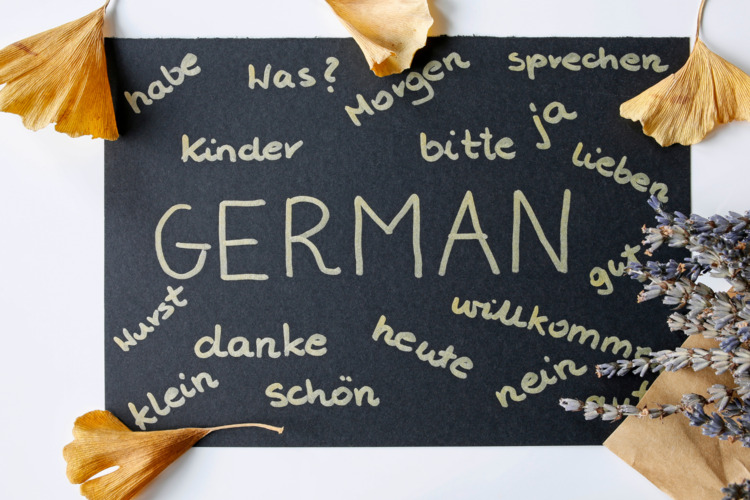 habe
Was?
Morgen
sprechen
ja
Kinder
bitte
lieben
GERMAN
gut
Wurst
willkomme
danke
heute
klein
schön
nein